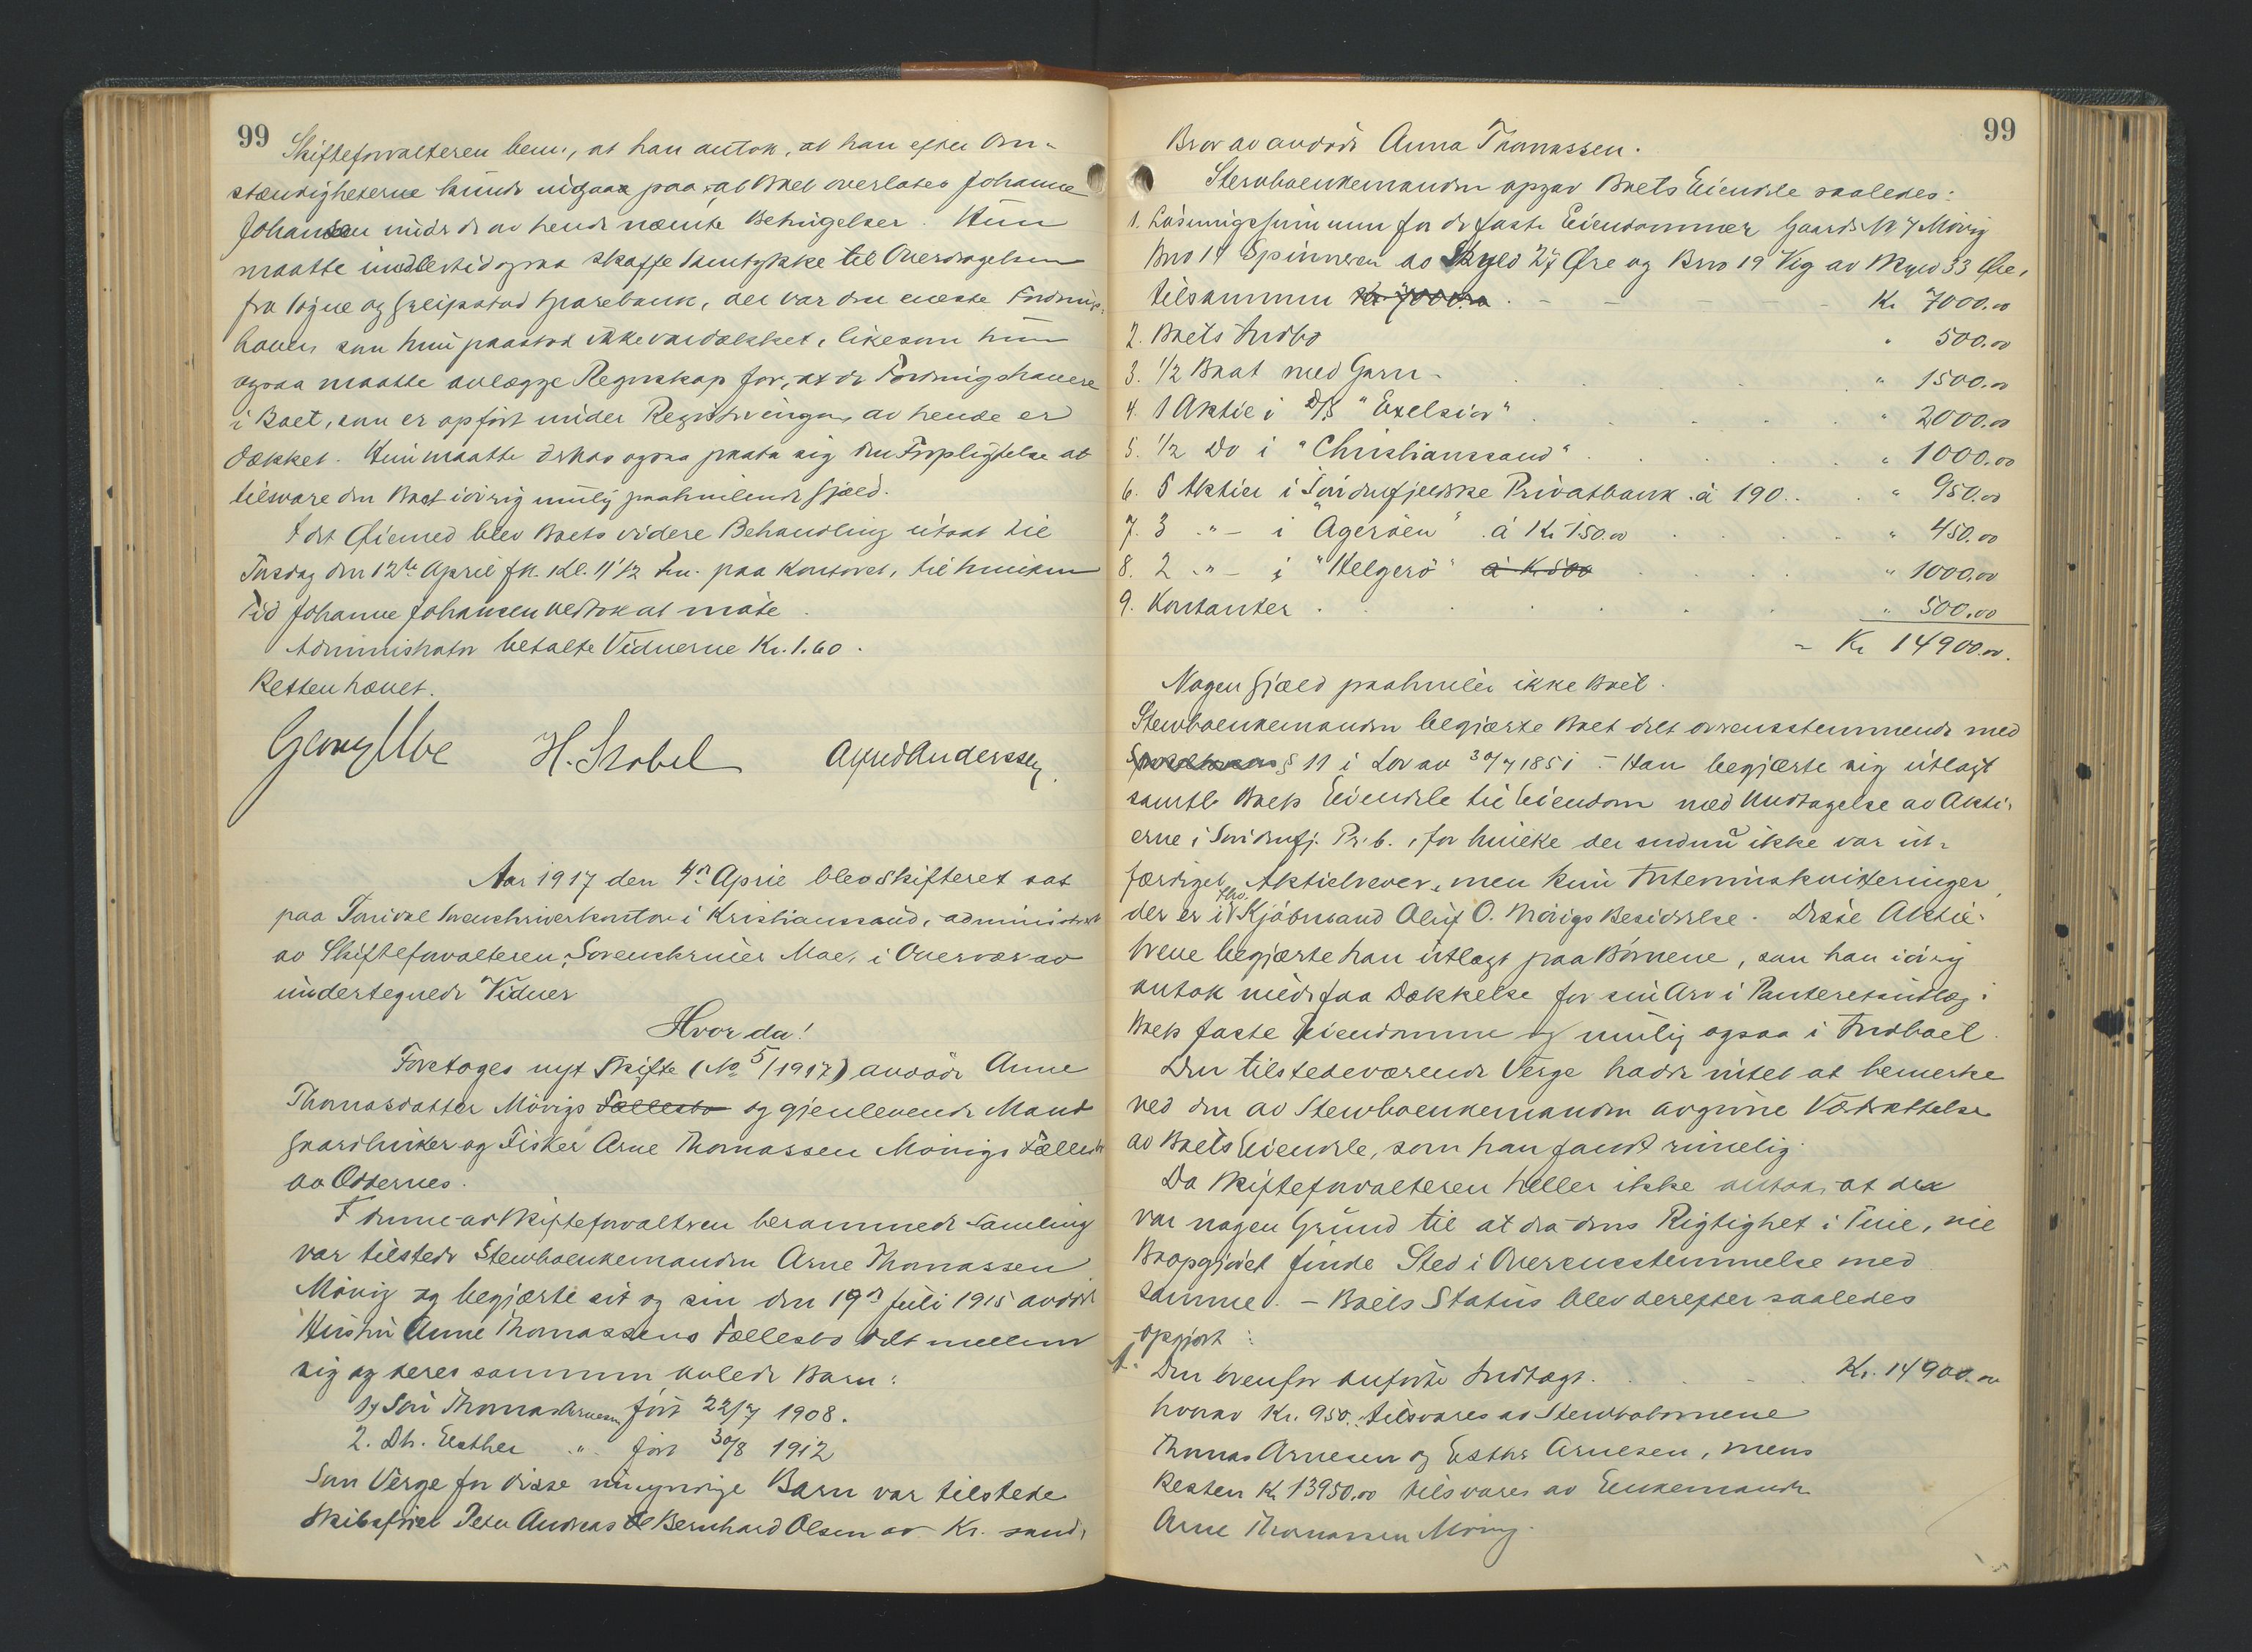 99
Skifteforvalteren bem., at han antok, at han efter Om-
stændigheterne kunde indgaa paa, at Boet overlates Johanne
Johansen under de av hende nævnte Betingelser. Hun
maatte imidlertid ogsaa skaffe Samtykke til Overdragelsen
fra Søgne og Greipstad Sparebank, der var den eneste Fordrings-
haver, som hun paastod ikke var dækket, likesom hun
ogsaa maatte avlægge Regnskap for, at de Fordringshavere
i Boet, som er opført under Registreringen, av hende er
dækket. Hun maatte derhos ogsaa paata sig den Forpligtelse at
tilsvare den Boet iøvrig mulig paahvilende Gjæld.
I det Øiemed blev Boets videre Behandling utsat til
Torsdag den 12te April fk. Kl. 11 1/2 Fm. paa Kontoret, til hvilken
Tid Johanne Johansen vedtok at møte.
Administrator betalte Vidnerne Kr. 1.60.
Retten hævet.
Georg Ube H. Skobel Agnes Anderssen
Aar 1917 den 4de April blev Skifteret sat
paa Torridal Sorenskriverkontor i Kristianssand, administrert
av Skifteforvalteren, Sorenskriver Moe, i Overvær av
undertegnede Vidner
Hvor da!
Foretoges nyt Skifte (No 5/1917) avdøde Anne
Thomasdatter Møvigs Fællesbo og gjenlevende Mand
Gaardbruker og Fisker Arne Thomassen Møvigs Fællesbo
av Oddernes.
I denne av Skifteforvalteren berammede Samling
var tilstede Stervboenkemanden Arne Thomassen
Møvig og begjærte sit og sin den 19de Juli 1915 avdøde
Hustru Anne Thomassens Fællesbo delt mellem
sig og deres sammen avlede Barn:
1) Søn Thomas Arnesen født 22/7 1908.
2. Dt. Esther " født 30/8 1912
Som Verge for disse umyndige Barn var tilstede
Skibsfører Peder Andreas Bernhard Olsen av Kr. sand,
99
Bror av avdøde Anna Thomassen.
Stervboenkemanden opgav Boets Eiendele saaledes:
1. Løsningssummen for de faste Eiendommer Gaards No 7 Møvig
Bno 14 Spinneren av Skyld 27 Øre og Bno 19 Vig av Skyld 33 Øre,
tilsammen Kr 7000.00 Kr 7000.00
2. Boets Indbo " 500.00
3. 1/2 Baat med Garn - " 1500.00
4. 1 Aktie i D/S "Exelsior" " 2000.00
5. 1/2 Do i "Christianssand" " 1000.00
6. 5 Aktier i Søndenfjeldske Privatbank à 190.. " 950.00
7. 3 -"- i "Agerøen" à Kr 150.00 " 450.00
8. 2 -"- i "Helgerø" à Kr 500 " 1000.00
9. Kontanter " 500.00
= Kr 14900.00.
Nogen Gjæld paahviler ikke Boet.
Stervboenkemanden begjærte Boet delt overensstemmende med
§ 11 i Lov av 30/7 1851 - Han begjærte sig utlagt
samtl. Boets Eiendele til Eiendom med Undtagelse av Akti-
erne i Søndenfj. Pr.b., for hvilke der endnu ikke var ut-
færdiget Aktiebrever, men kun Interimskvitteringer,
der er i Kjøbmand Oluf O. Møvigs Besiddelse. Disse Aktie-
breve begjærte han utlagt paa Børnene, som han iøvrig
antok vilde faa Dækkelse for sin Arv i Panteretsindlæg i
Boets faste Eiendomme og mulig ogsaa i Indboet.
Den tilstedeværende Verge hadde intet at bemerke
ved den av Stervboenkemanden avgivne Værdsættelse
av Boets Eiendele, som han fandt rimelig.
Da Skifteforvalteren heller ikke antok, at der
var nogen Grund til at dra dens Rigtighet i Tvil, vil
Boopgjøret finde Sted i Overensstemmelse med
samme. - Boets Status blev derefter saaledes
opgjort:
1. Den ovenfor anførte Indtægt. Kr. 14900.00
hvorav Kr. 950. tilsvares av Stervbobørnene
Thomas Arnesen og Esther Arnesen, mens
Resten Kr 13950.00 tilsvares av Enkemanden
Arne Thomassen Møvig.